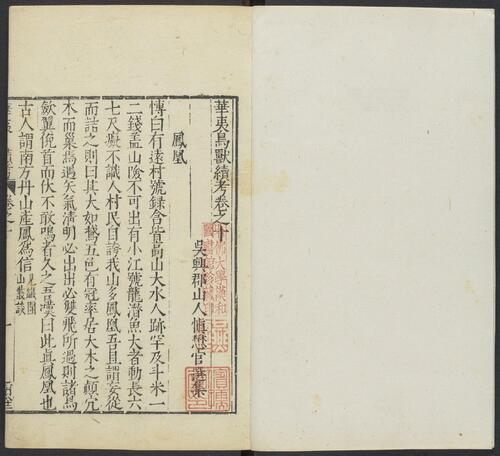 華夷鳥獸續考卷之十
吳興郡山人愼懋官選集
鳳凰
博白有遠村號録含皆高山大水人跡罕及斗米一
二錢盖山險不可出有小江號龍潛魚大者動長六
七尺癡不識人村民自誇我山多鳳凰吾且謂妄從
而詰之則曰其大如鵞五色有冠率居大木之顛穴
木而巢焉遇天氣清明必出出必雙飛所過則諸鳥
斂翼俛首而伏不敢鳴者久之吾嘆曰此真鳳凰也
古人謂南方丹山産鳳爲信見鐵圍山叢談